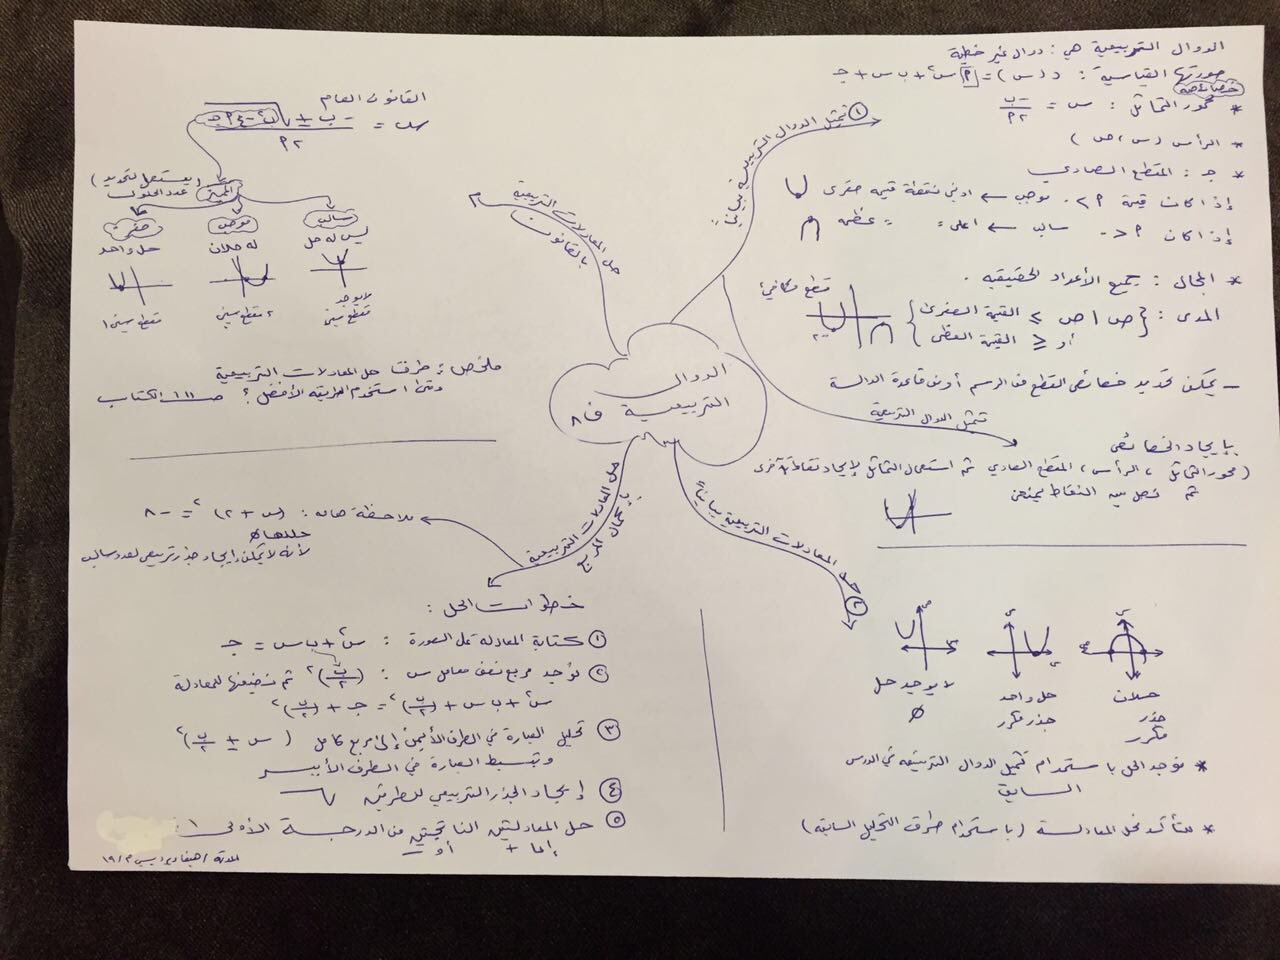 الدوال التربيعية هي: دوال غير خطية
صورتها القياسية: د(س) = أ س² + ب س + جـ
خصائصه
* محور التماثل: س = -ب / ٢أ
* الرأس (س ، ص)
* جـ: المقطع الصادي
إذا كانت قيمة أ > ٠ موجب ← ادنى نقطة قيمه صغرى
إذا كان أ < ٠ سالب ← اعلى = = عظمى
* المجال: جميع الأعداد الحقيقيه.
المدى: {ص | ص ≥ القيمة الصغرى
أو ≤ القيمة العظمى}
قطع مكافئ
- يمكن تحديد خصائص القطع من الرسم أو من قاعدة الدالة
① تمثيل الدوال التربيعية بيانياً
تمثيل الدوال التربيعية
بإيجاد الخصائص
(محور التماثل ، الرأس ، المقطع الصادي ثم استعمال التماثل لإيجاد نقاط أخرى
ثم نصل بين النقاط بمنحنى
الدوال
التربيعية ف٨
② حل المعادلات التربيعية بيانياً
حلان
جذر
مكرر
حل واحد
جذر مكرر
لا يوجد حل
∅
* نوجد الحل باستخدام تمثيل الدوال التربيعيه في الدرس
السابق
* نتأكد من حل المعادلة (باستخدام طرق التحليل السابقه)
حل المعادلات التربيعية
بالقانون
القانون العام
س = -ب ± √ب² - ٤أجـ / ٢أ
المميز (يستعمل لتحديد
عدد الحلول)
سالب
ليس له حل
لا يوجد
مقطع سيني
موجب
له حلان
٢ مقطع سيني
صفر
حل واحد
مقطع سيني ١
ملخص: طرق حل المعادلات التربيعية
ومتى استخدم الطريقه الأفضل؟ صـ١١١ الكتاب
حل المعادلات التربيعية
بإكمال المربع
ملاحظة هامه: (س + ٢)² = -٨
حلها ∅
لأنه لا يمكن إيجاد جذر تربيعي لعدد سالب
خطوات الحل:
① كتابة المعادله على الصورة: س² + ب س = جـ
② نوجد مربع نصف معامل س: (ب/٢)² ثم نضيفها للمعادلة
س² + ب س + (ب/٢)² = جـ + (ب/٢)²
③ تحليل العبارة في الطرف الأيمن إلى مربع كامل (س ± ب/٢)²
وتبسيط العبارة في الطرف الأيسر
④ إيجاد الجذر التربيعي للطرفين √
⑤ حل المعادلتين الناتجتين من الدرجة الأولى
إما + أو -